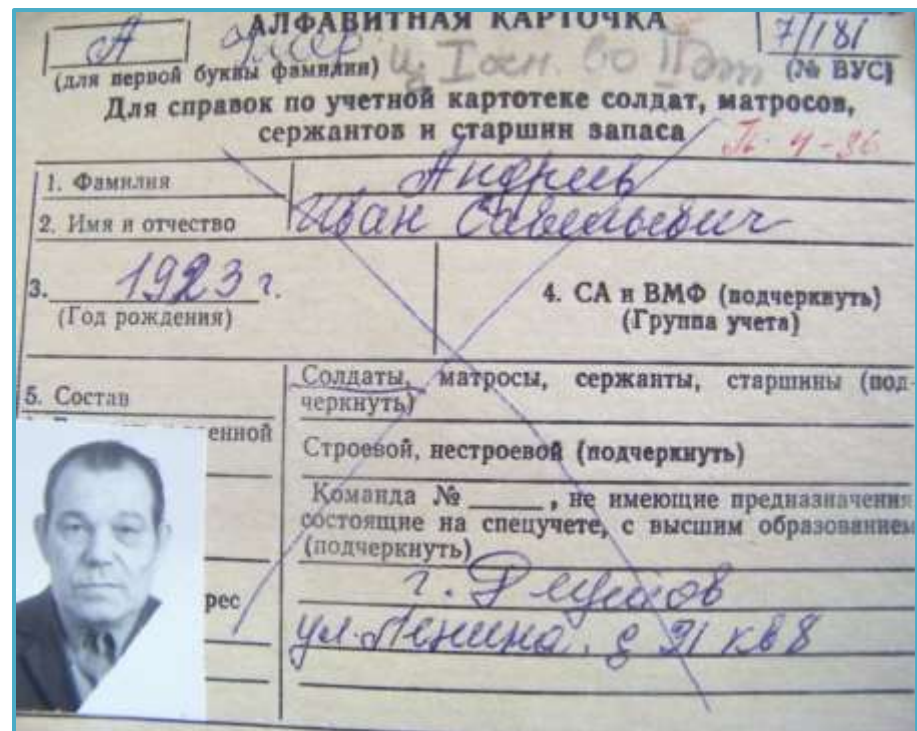 АЛФАВИТНАЯ КАРТОЧКА
А
7/181
(для первой буквы фамилии)
(№ ВУС)
Для справок по учетной картотеке солдат, матросов,
сержантов и старшин запаса
1. Фамилия Андреев
2. Имя и отчество Иван Савельевич
3. 1923 г.
(Год рождения)
4. СА и ВМФ (подчеркнуть)
(Группа учета)
5. Состав
Солдаты, матросы, сержанты, старшины (под-
черкнуть)
енной
Строевой, нестроевой (подчеркнуть)
Команда № , не имеющие предназначения
состоящие на спецучете, с высшим образованием
(подчеркнуть)
рес
г.
ул. Ленина. д 21 кв 8